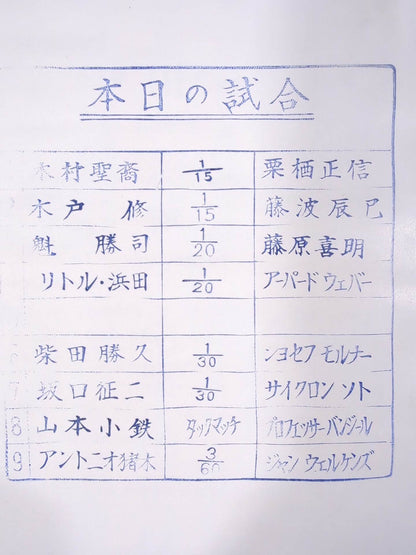 本日の試合
木村聖裔 1/15 栗栖正信
木戸 修 1/15 藤波辰巳
魁 勝司 1/20 藤原喜明
リトル・浜田 1/20 アーパードウェバー
柴田勝久 1/30 ジョセフ モルナー
7 坂口征二 1/30 サイクロン ソト
8 山本小鉄 タックマッチ プロフェッサーバンジール
9 アントニオ猪木 3/60 ジャン ウェルケンズ